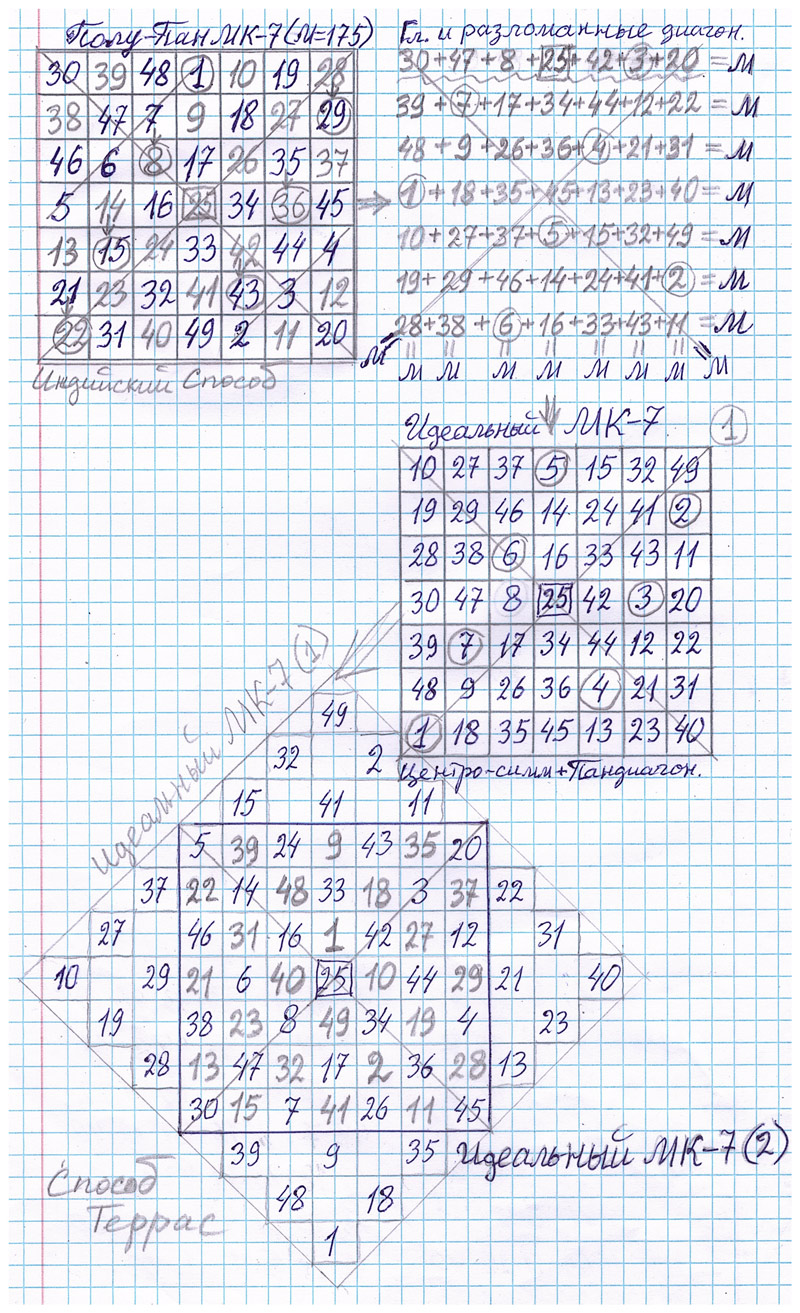 Полу-Пан МК-7 (М=175)
30 39 48 1 10 19 28
38 47 7 9 18 27 29
46 6 8 17 26 35 37
5 14 16 25 34 36 45
13 15 24 33 42 44 4
21 23 32 41 43 3 12
22 31 40 49 2 11 20
Индийский Способ
Гл. и разломанные диагон.
30+47+8+25+42+3+20=М
39+7+17+34+44+12+22=М
48+9+26+36+4+21+31=М
1+18+35+45+13+23+40=М
10+27+37+5+15+32+49=М
19+29+46+14+24+41+2=М
28+38+6+16+33+43+11=М
М М М М М М М М М
Идеальный МК-7 1
10 27 37 5 15 32 49
19 29 46 14 24 41 2
28 38 6 16 33 43 11
30 47 8 25 42 3 20
39 7 17 34 44 12 22
48 9 26 36 4 21 31
1 18 35 45 13 23 40
Центро-симм+Пандиагон.
Идеальный МК-7 (1)
49
32 2
15 41 11
5 39 24 9 43 35 20
37 22 14 48 33 18 3 37 22
27 46 31 16 1 42 27 12 31
10 29 21 6 40 25 10 44 29 21 40
19 38 23 8 49 34 19 4 23
28 13 47 32 17 2 36 28 13
30 15 7 41 26 11 45
39 9 35
48 18
1
Идеальный МК-7 (2)
Способ
Террас